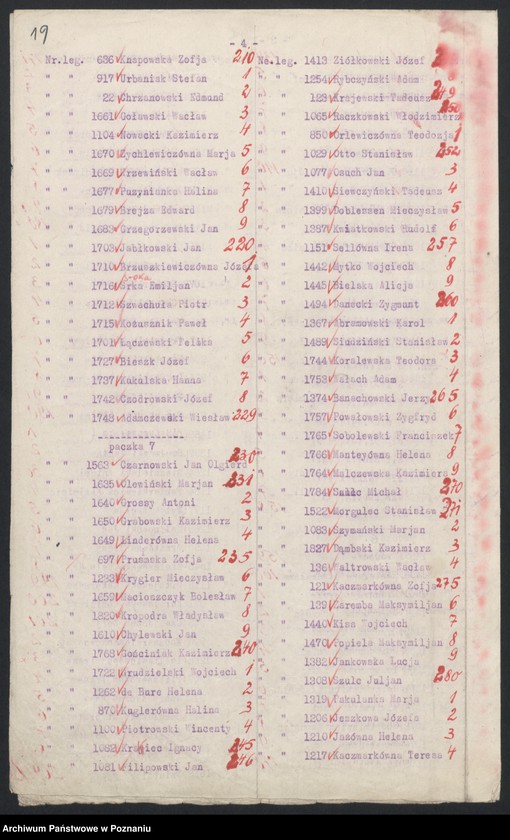 19
- 4 -
Nr.leg. 636 Knapowska Zofja 210
" " 917 Urbaniak Stefan 1
" " 22 Chrzanowski Edmund 2
" " 1661 Goławski Wacław 3
" " 1104 Nowacki Kazimierz 4
" " 1670 Żychlewiczówna Marja 5
" " 1669 Krzewiński Wacław 6
" " 1677 Puzynianko Halina 7
" " 1679 Brejza Edward 8
" " 1683 Grzegorzewski Jan 9
" " 1703 Jabłkowski Jan 220
" " 1710 Brzuszkiewiczówna Józefa 1
" " 1718 Srka Emiljan 2
" " 1712 Szwachała Piotr 3
" " 1715 Kożusznik Paweł 4
" " 1701 Łączewski Feliks 5
" " 1727 Bieszk Józef 6
" " 1737 Kukalska Hanna 7
" " 1742 Czodrowski Józef 8
" " 1743 Adamczewski Wiesław 229
paczka 7
" " 1563 Czarnowski Jan Olgierd 230
" " 1635 Olewiński Marjan 231
" " 1640 Grossy Antoni 2
" " 1650 Grabowski Kazimierz 3
" " 1649 Linderówna Helena 4
" " 697 Prusacka Zofja 235
" " 1293 Krygier Mieczysław 6
" " 1659 Macioszczyk Bolesław 7
" " 1820 Kropodra Władysław 8
" " 1610 Chylewski Jan 9
" " 1768 Gościniak Kazimierz 240
" " 1722 Grudzielski Wojciech 1
" " 1262 de Hare Helena 2
" " 870 Kuglerówna Halina 3
" " 1100 Piotrowski Wincenty 4
" " 1082 Krawiec Ignacy 245
" " 1081 Filipowski Jan 246
Nr.leg. 1413 Ziółkowski Józef
" " 1254 Rybczyński Adam 8
" " 123 Krajewski Tadeusz 249
" " 1065 Raczkowski Włodzimierz 250
" " 850 Orlewiczówna Teodozja 1
" " 1029 Otto Stanisław 252
" " 1077 Osuch Jan 3
" " 1410 Siewczyński Tadeusz 4
" " 1399 Doblensen Mieczysław 5
" " 1387 Kwiatkowski Rudolf 6
" " 1151 Sellówna Irena 257
" " 1442 Rytko Wojciech 8
" " 1445 Bielska Alicja 9
" " 1494 Danecki Zygmunt 260
" " 1367 Abramowski Karol 1
" " 1489 Słudziński Stanisław 2
" " 1744 Koralewska Teodora 3
" " 1753 Wałach Adam 4
" " 1374 Banachowski Jerzy 265
" " 1757 Powałowski Zygfryd 6
" " 1765 Sobolewski Franciszek 7
" " 1766 Manteydówna Helena 8
" " 1764 Malczewska Kazimiera 9
" " 1784 Szulc Michał 270
" " 1522 Morgulec Stanisław 271
" " 1083 Szymański Marjan 2
" " 1827 Dąmbski Kazimierz 3
" " 136 Waltrowski Wacław 4
" " 121 Kaczmarkówna Zofja 275
" " 139 Zaremba Maksymiljan 6
" " 1440 Kiss Wojciech 7
" " 1470 Popiela Maksymiljan 8
" " 1382 Jankowska Łucja 9
" " 1308 Szulc Juljan 280
" " 1319 Pakulanka Marja 1
" " 1206 Jeszkowa Józefa 2
" " 1210 Jasówna Helena 3
" " 1217 Kaczmarkówna Teresa 4
Archiwum Państwowe w Poznaniu